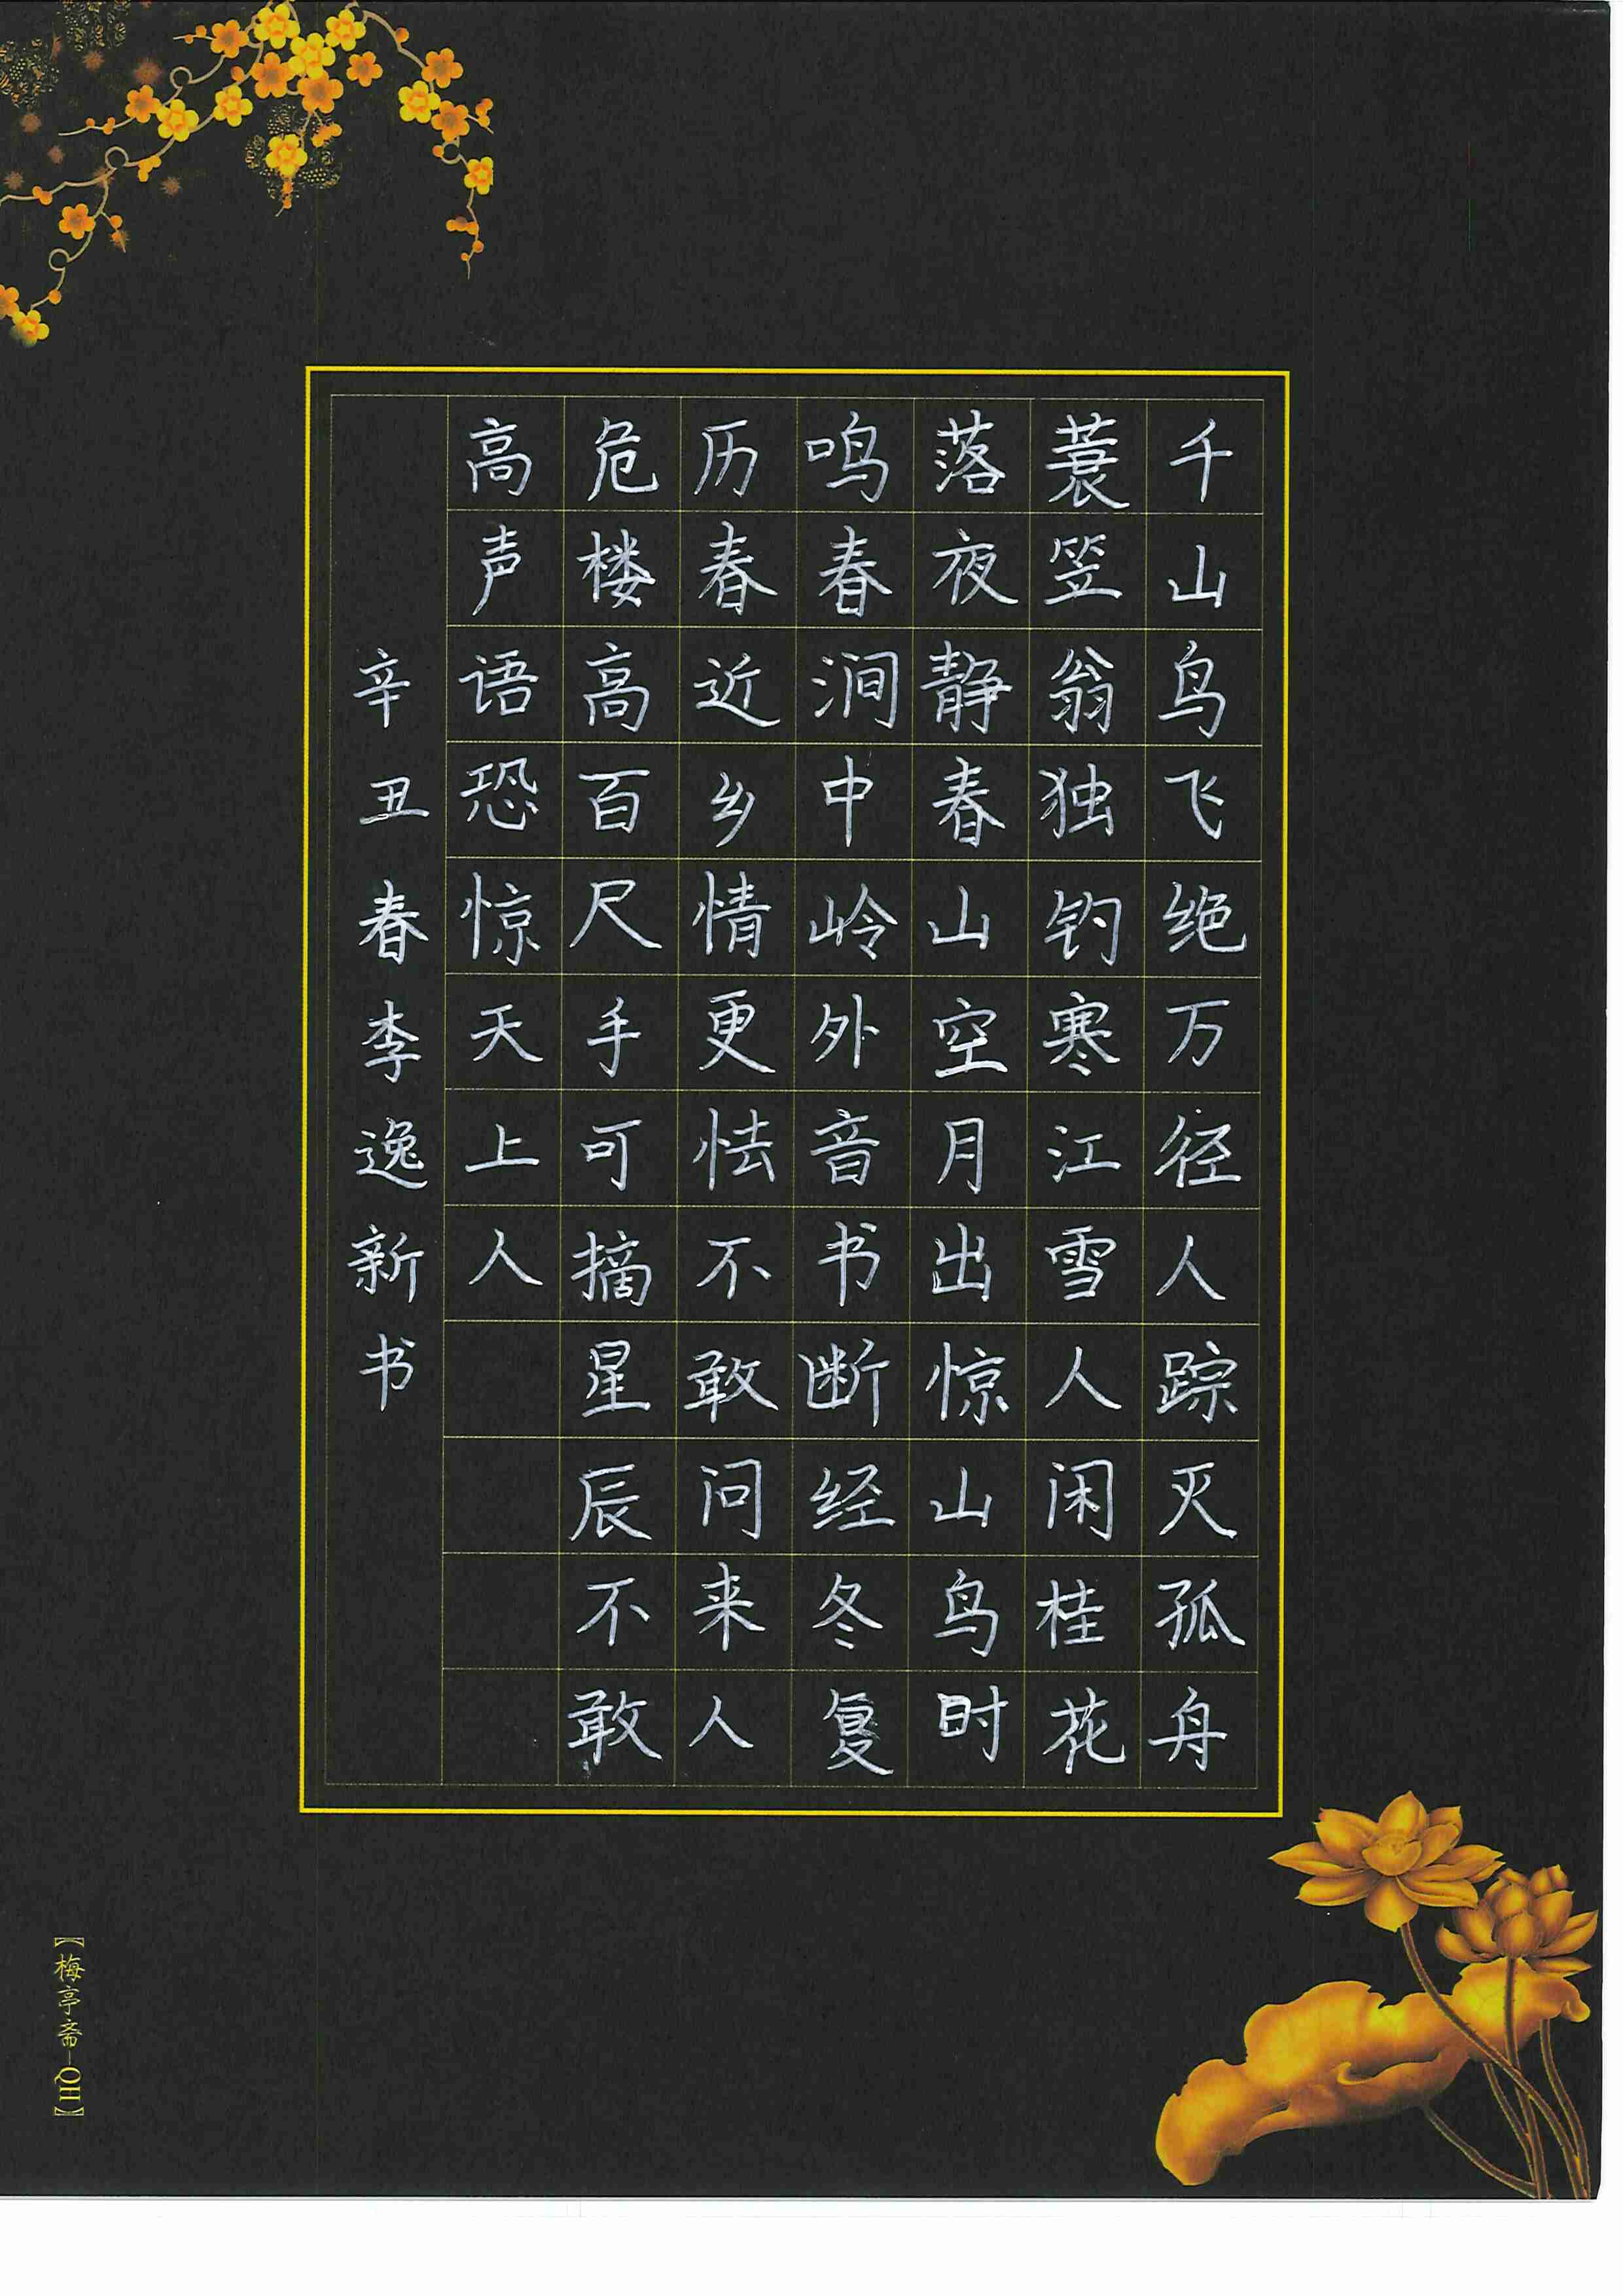 千山鸟飞绝万径人踪灭孤舟
蓑笠翁独钓寒江雪人闲桂花
落夜静春山空月出惊山鸟时
鸣春涧中岭外音书断经冬复
历春近乡情更怯不敢问来人
危楼高百尺手可摘星辰不敢
高声语恐惊天上人
辛丑春李逸新书
【梅亭斋-QH】